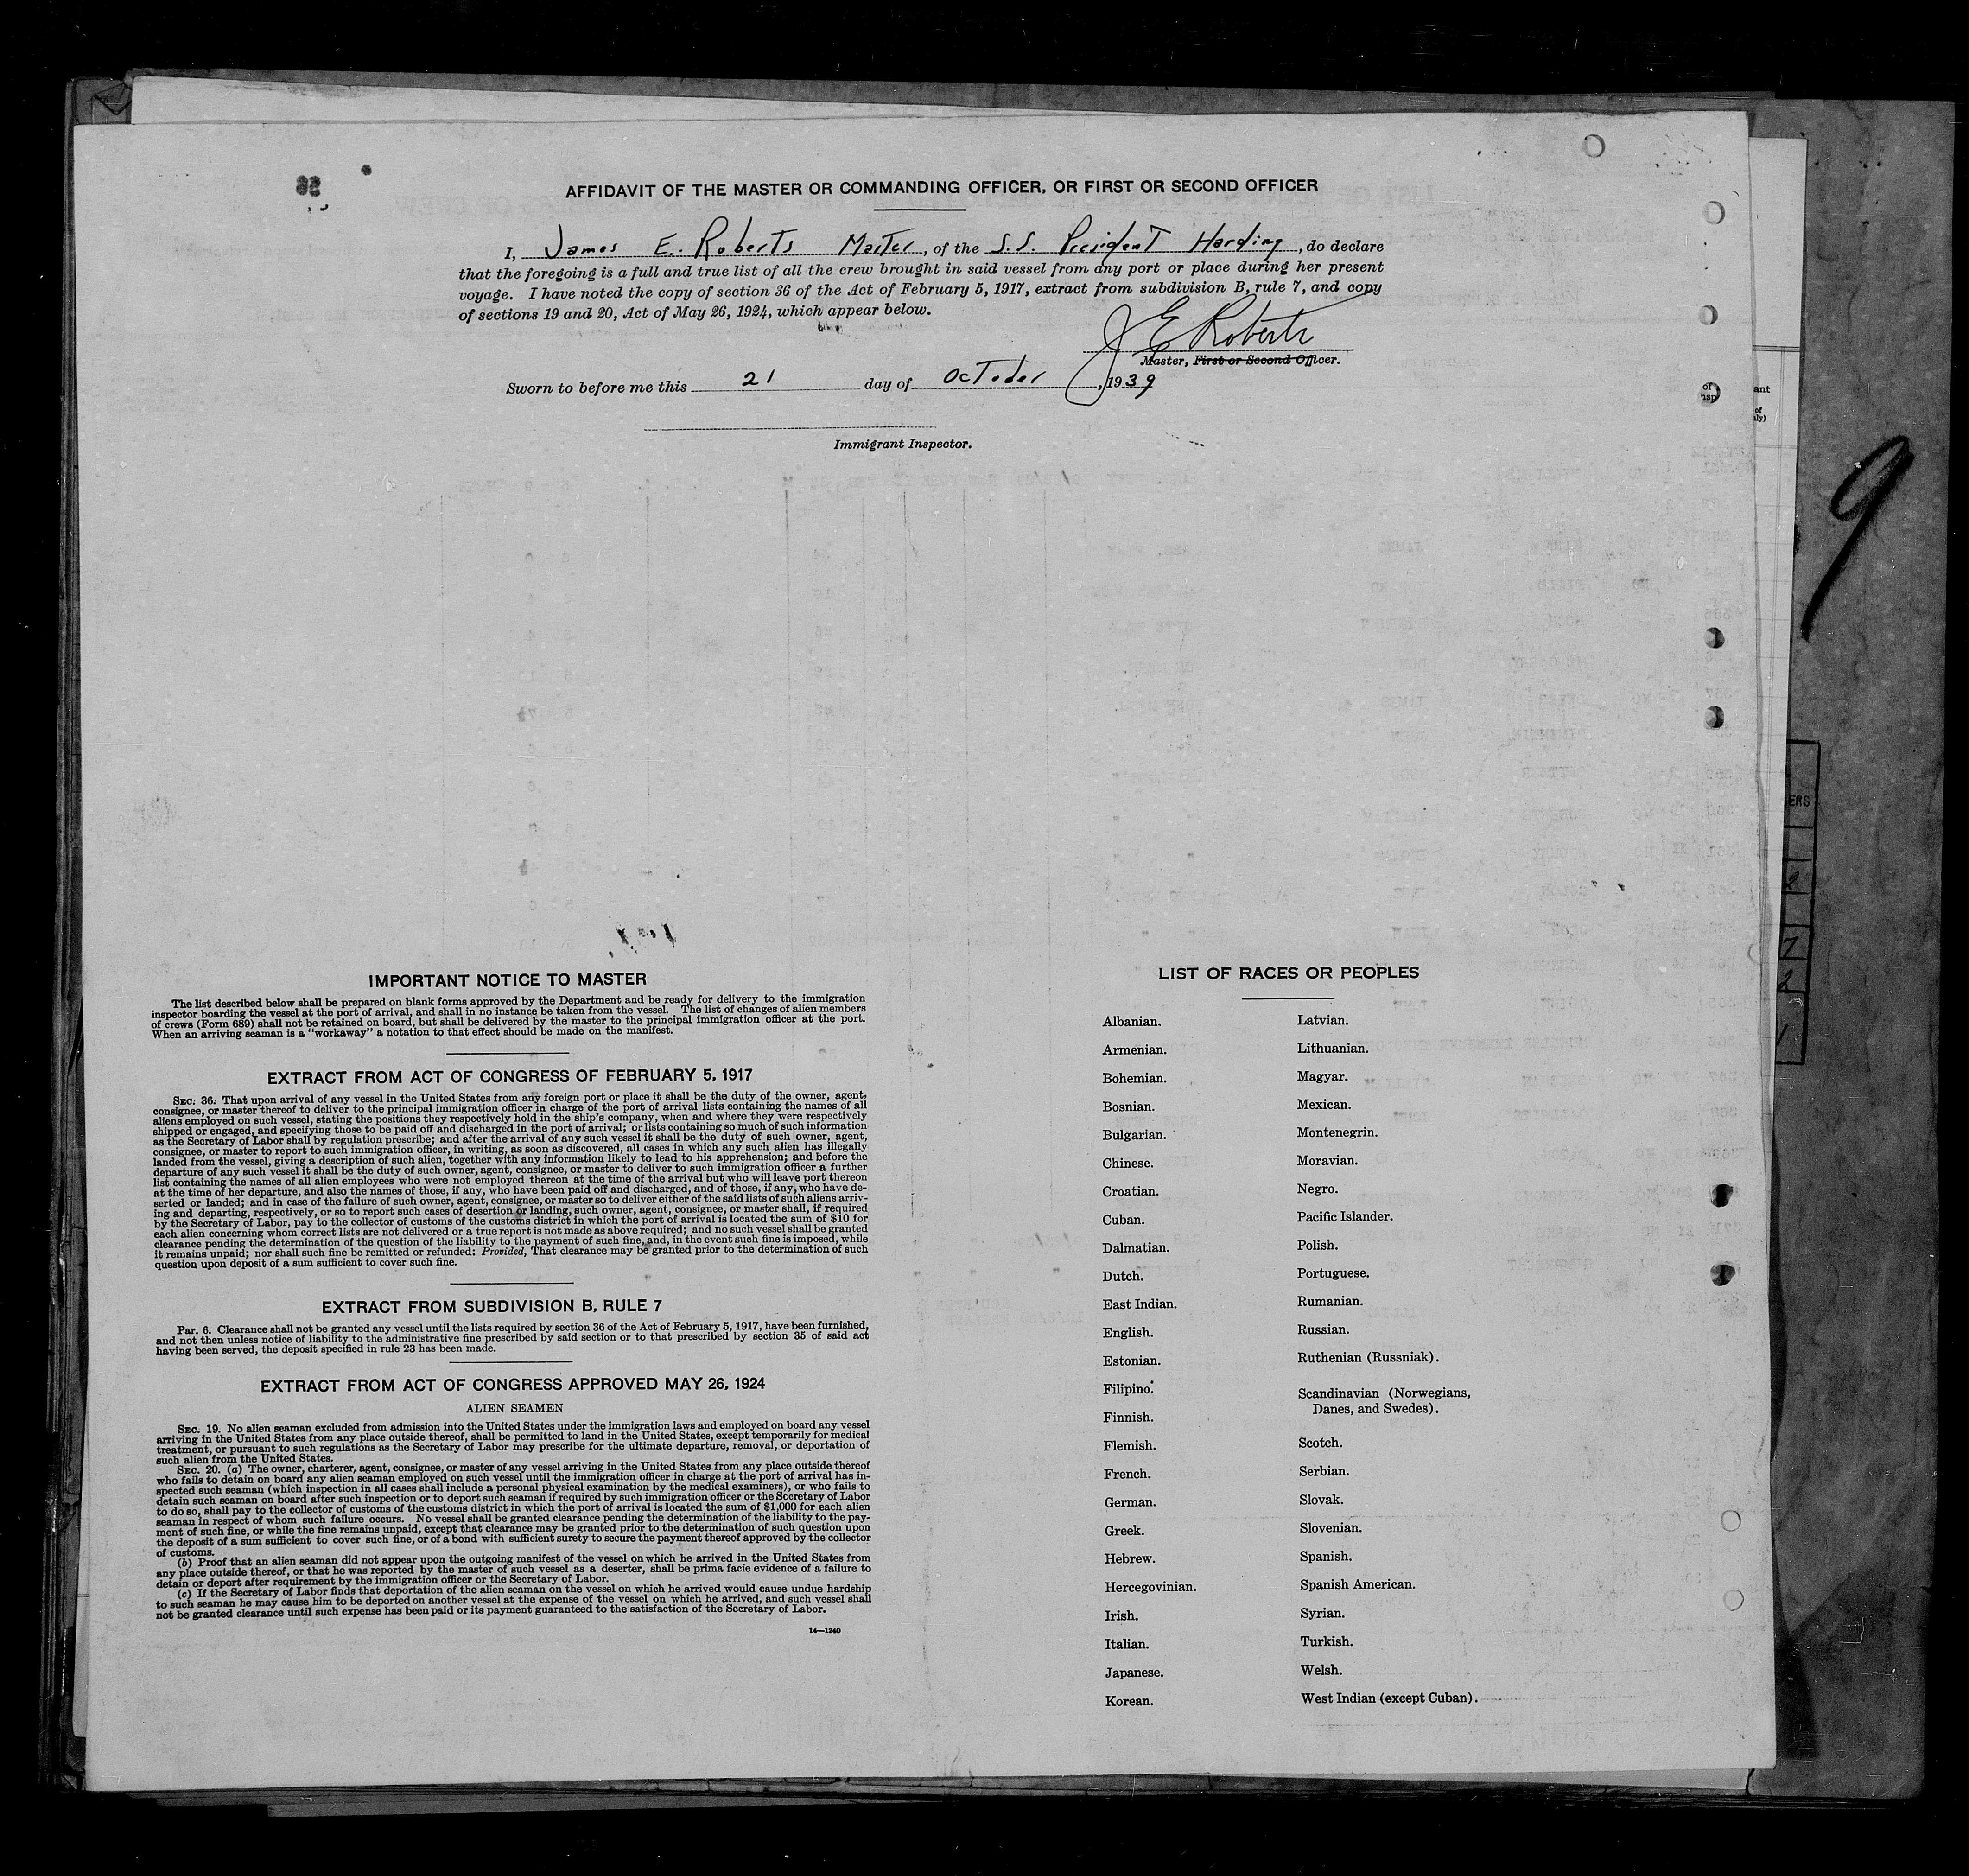 AFFIDAVIT OF THE MASTER OR COMMANDING OFFICER, OR FIRST OR SECOND OFFICER
I, James E. Roberts Master, of the S.S. President Harding, do declare
that the foregoing is a full and true list of all the crew brought in said vessel from any port or place during her present
voyage. I have noted the copy of section 36 of the Act of February 5, 1917, extract from subdivision B, rule 7, and copy
of sections 19 and 20, Act of May 26, 1924, which appear below.
J E Roberts
Master, First or Second Officer.
Sworn to before me this 21 day of October, 1939
Immigrant Inspector.
9
IMPORTANT NOTICE TO MASTER
The list described below shall be prepared on blank forms approved by the Department and be ready for delivery to the immigration
inspector boarding the vessel at the port of arrival, and shall in no instance be taken from the vessel. The list of changes of alien members
of crews (Form 689) shall not be retained on board, but shall be delivered by the master to the principal immigration officer at the port.
When an arriving seaman is a "workaway" a notation to that effect should be made on the manifest.
EXTRACT FROM ACT OF CONGRESS OF FEBRUARY 5, 1917
SEC. 36. That upon arrival of any vessel in the United States from any foreign port or place it shall be the duty of the owner, agent,
consignee, or master thereof to deliver to the principal immigration officer in charge of the port of arrival lists containing the names of all
aliens employed on such vessel, stating the positions they respectively hold in the ship's company, when and where they were respectively
shipped or engaged, and specifying those to be paid off and discharged in the port of arrival; or lists containing so much of such information
as the Secretary of Labor shall by regulation prescribe; and after the arrival of any such vessel it shall be the duty of such owner, agent,
consignee, or master to report to such immigration officer, in writing, as soon as discovered, all cases in which any such alien has illegally
landed from the vessel, giving a description of such alien, together with any information likely to lead to his apprehension; and before the
departure of any such vessel it shall be the duty of such owner, agent, consignee, or master to deliver to such immigration officer a further
list containing the names of all alien employees who were not employed thereon at the time of the arrival but who will leave port thereon
at the time of her departure, and also the names of those, if any, who have been paid off and discharged, and of those, if any, who have de-
serted or landed; and in case of the failure of such owner, agent, consignee, or master so to deliver either of the said lists of such aliens arriv-
ing and departing, respectively, or so to report such cases of desertion or landing, such owner, agent, consignee, or master shall, if required
by the Secretary of Labor, pay to the collector of customs of the customs district in which the port of arrival is located the sum of $10 for
each alien concerning whom correct lists are not delivered or a true report is not made as above required; and no such vessel shall be granted
clearance pending the determination of the question of the liability to the payment of such fine, and, in the event such fine is imposed, while
it remains unpaid; nor shall such fine be remitted or refunded: Provided, That clearance may be granted prior to the determination of such
question upon deposit of a sum sufficient to cover such fine.
EXTRACT FROM SUBDIVISION B, RULE 7
Par. 6. Clearance shall not be granted any vessel until the lists required by section 36 of the Act of February 5, 1917, have been furnished,
and not then unless notice of liability to the administrative fine prescribed by said section or to that prescribed by section 35 of said act
having been served, the deposit specified in rule 23 has been made.
EXTRACT FROM ACT OF CONGRESS APPROVED MAY 26, 1924
ALIEN SEAMEN
SEC. 19. No alien seaman excluded from admission into the United States under the immigration laws and employed on board any vessel
arriving in the United States from any place outside thereof, shall be permitted to land in the United States, except temporarily for medical
treatment, or pursuant to such regulations as the Secretary of Labor may prescribe for the ultimate departure, removal, or deportation of
such alien from the United States.
SEC. 20. (a) The owner, charterer, agent, consignee, or master of any vessel arriving in the United States from any place outside thereof
who fails to detain on board any alien seaman employed on such vessel until the immigration officer in charge at the port of arrival has in-
spected such seaman (which inspection in all cases shall include a personal physical examination by the medical examiners), or who fails to
detain such seaman on board after such inspection or to deport such seaman if required by such immigration officer or the Secretary of Labor
to do so, shall pay to the collector of customs of the customs district in which the port of arrival is located the sum of $1,000 for each alien
seaman in respect of whom such failure occurs. No vessel shall be granted clearance pending the determination of the liability to the pay-
ment of such fine, or while the fine remains unpaid, except that clearance may be granted prior to the determination of such question upon
the deposit of a sum sufficient to cover such fine, or of a bond with sufficient surety to secure the payment thereof approved by the collector
of customs.
(b) Proof that an alien seaman did not appear upon the outgoing manifest of the vessel on which he arrived in the United States from
any place outside thereof, or that he was reported by the master of such vessel as a deserter, shall be prima facie evidence of a failure to
detain or deport after requirement by the immigration officer or the Secretary of Labor.
(c) If the Secretary of Labor finds that deportation of the alien seaman on the vessel on which he arrived would cause undue hardship
to such seaman he may cause him to be deported on another vessel at the expense of the vessel on which he arrived, and such vessel shall
not be granted clearance until such expense has been paid or its payment guaranteed to the satisfaction of the Secretary of Labor.
14—1240
LIST OF RACES OR PEOPLES
Albanian.
Armenian.
Bohemian.
Bosnian.
Bulgarian.
Chinese.
Croatian.
Cuban.
Dalmatian.
Dutch.
East Indian.
English.
Estonian.
Filipino.
Finnish.
Flemish.
French.
German.
Greek.
Hebrew.
Hercegovinian.
Irish.
Italian.
Japanese.
Korean.
Latvian.
Lithuanian.
Magyar.
Mexican.
Montenegrin.
Moravian.
Negro.
Pacific Islander.
Polish.
Portuguese.
Rumanian.
Russian.
Ruthenian (Russniak).
Scandinavian (Norwegians,
Danes, and Swedes).
Scotch.
Serbian.
Slovak.
Slovenian.
Spanish.
Spanish American.
Syrian.
Turkish.
Welsh.
West Indian (except Cuban).